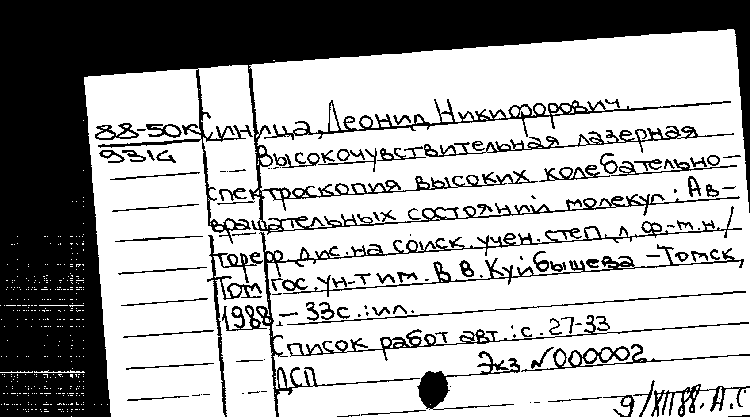 88-50К Синица, Леонид Никифорович.
931G Высокочувствительная лазерная
спектроскопия высоких колебательно-
вращательных состояний молекул : Ав-
тореф. дис. на соиск. учен. степ. д. ф.-м.н. /
Том. гос. ун-т им. В.В. Куйбышева - Томск,
1988. - 33с. : ил.
Список работ авт. : с. 27-33
ДСП Экз. №000002.
9/XII 88. А.С